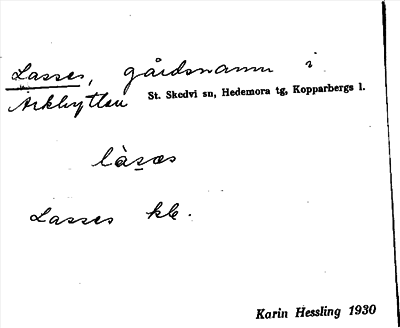 Lasses, gårdsnamn i
Arkhyttan St. Skedvi sn, Hedemora tg, Kopparbergs l.
làsæs
Lasses kle.
Karin Hessling 1930